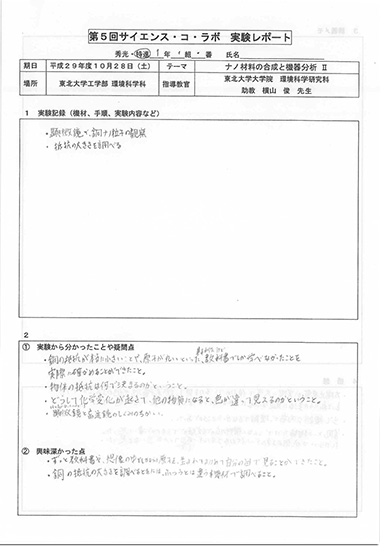 第5回サイエンス・コ・ラボ 実験レポート
秀光・特進 1年 組 番 氏名
期日 平成29年度10月28日(土) テーマ ナノ材料の合成と機器分析 Ⅱ
場所 東北大学工学部 環境科学科 指導教官 東北大学大学院 環境科学研究科
助教 横山 俊 先生
1 実験記録(機材、手順、実験内容など)
・顕微鏡で、銅ナノ粒子の観察
・抵抗の大きさを調べる
2
① 実験から分かったことや疑問点
・銅の抵抗が 小さいことや、 教科書でしか学べなかったことを
実際に確かめることができたこと。
・物体の抵抗は何で決まるのかということ。
・どうして化学変化が起きて、他の物質になると、色が違って見えるのかということ。
② 興味深かった点
・ずっと教科書や、想像の
自分の目で見ることができたこと。
・銅の抵抗の大きさを調べるときには、ふつうとは違う機械で調べること。